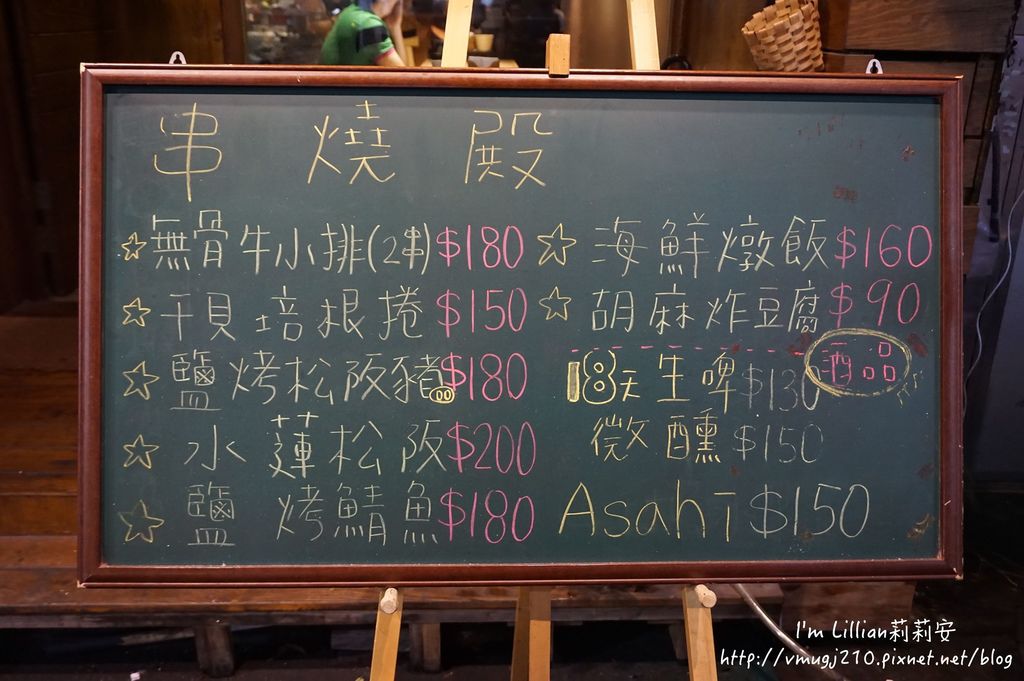 串燒殿
☆無骨牛小排(2串)$180
☆干貝培根捲$150
☆鹽烤松阪豬$180
☆水蓮松阪$200
☆鹽烤鯖魚$180
☆海鮮燉飯$160
☆胡麻炸豆腐$90
酒品
18天生啤$130
微醺$150
Asahi $150
I'm Lillian莉莉安
http://vmugj210.pixnet.net/blog